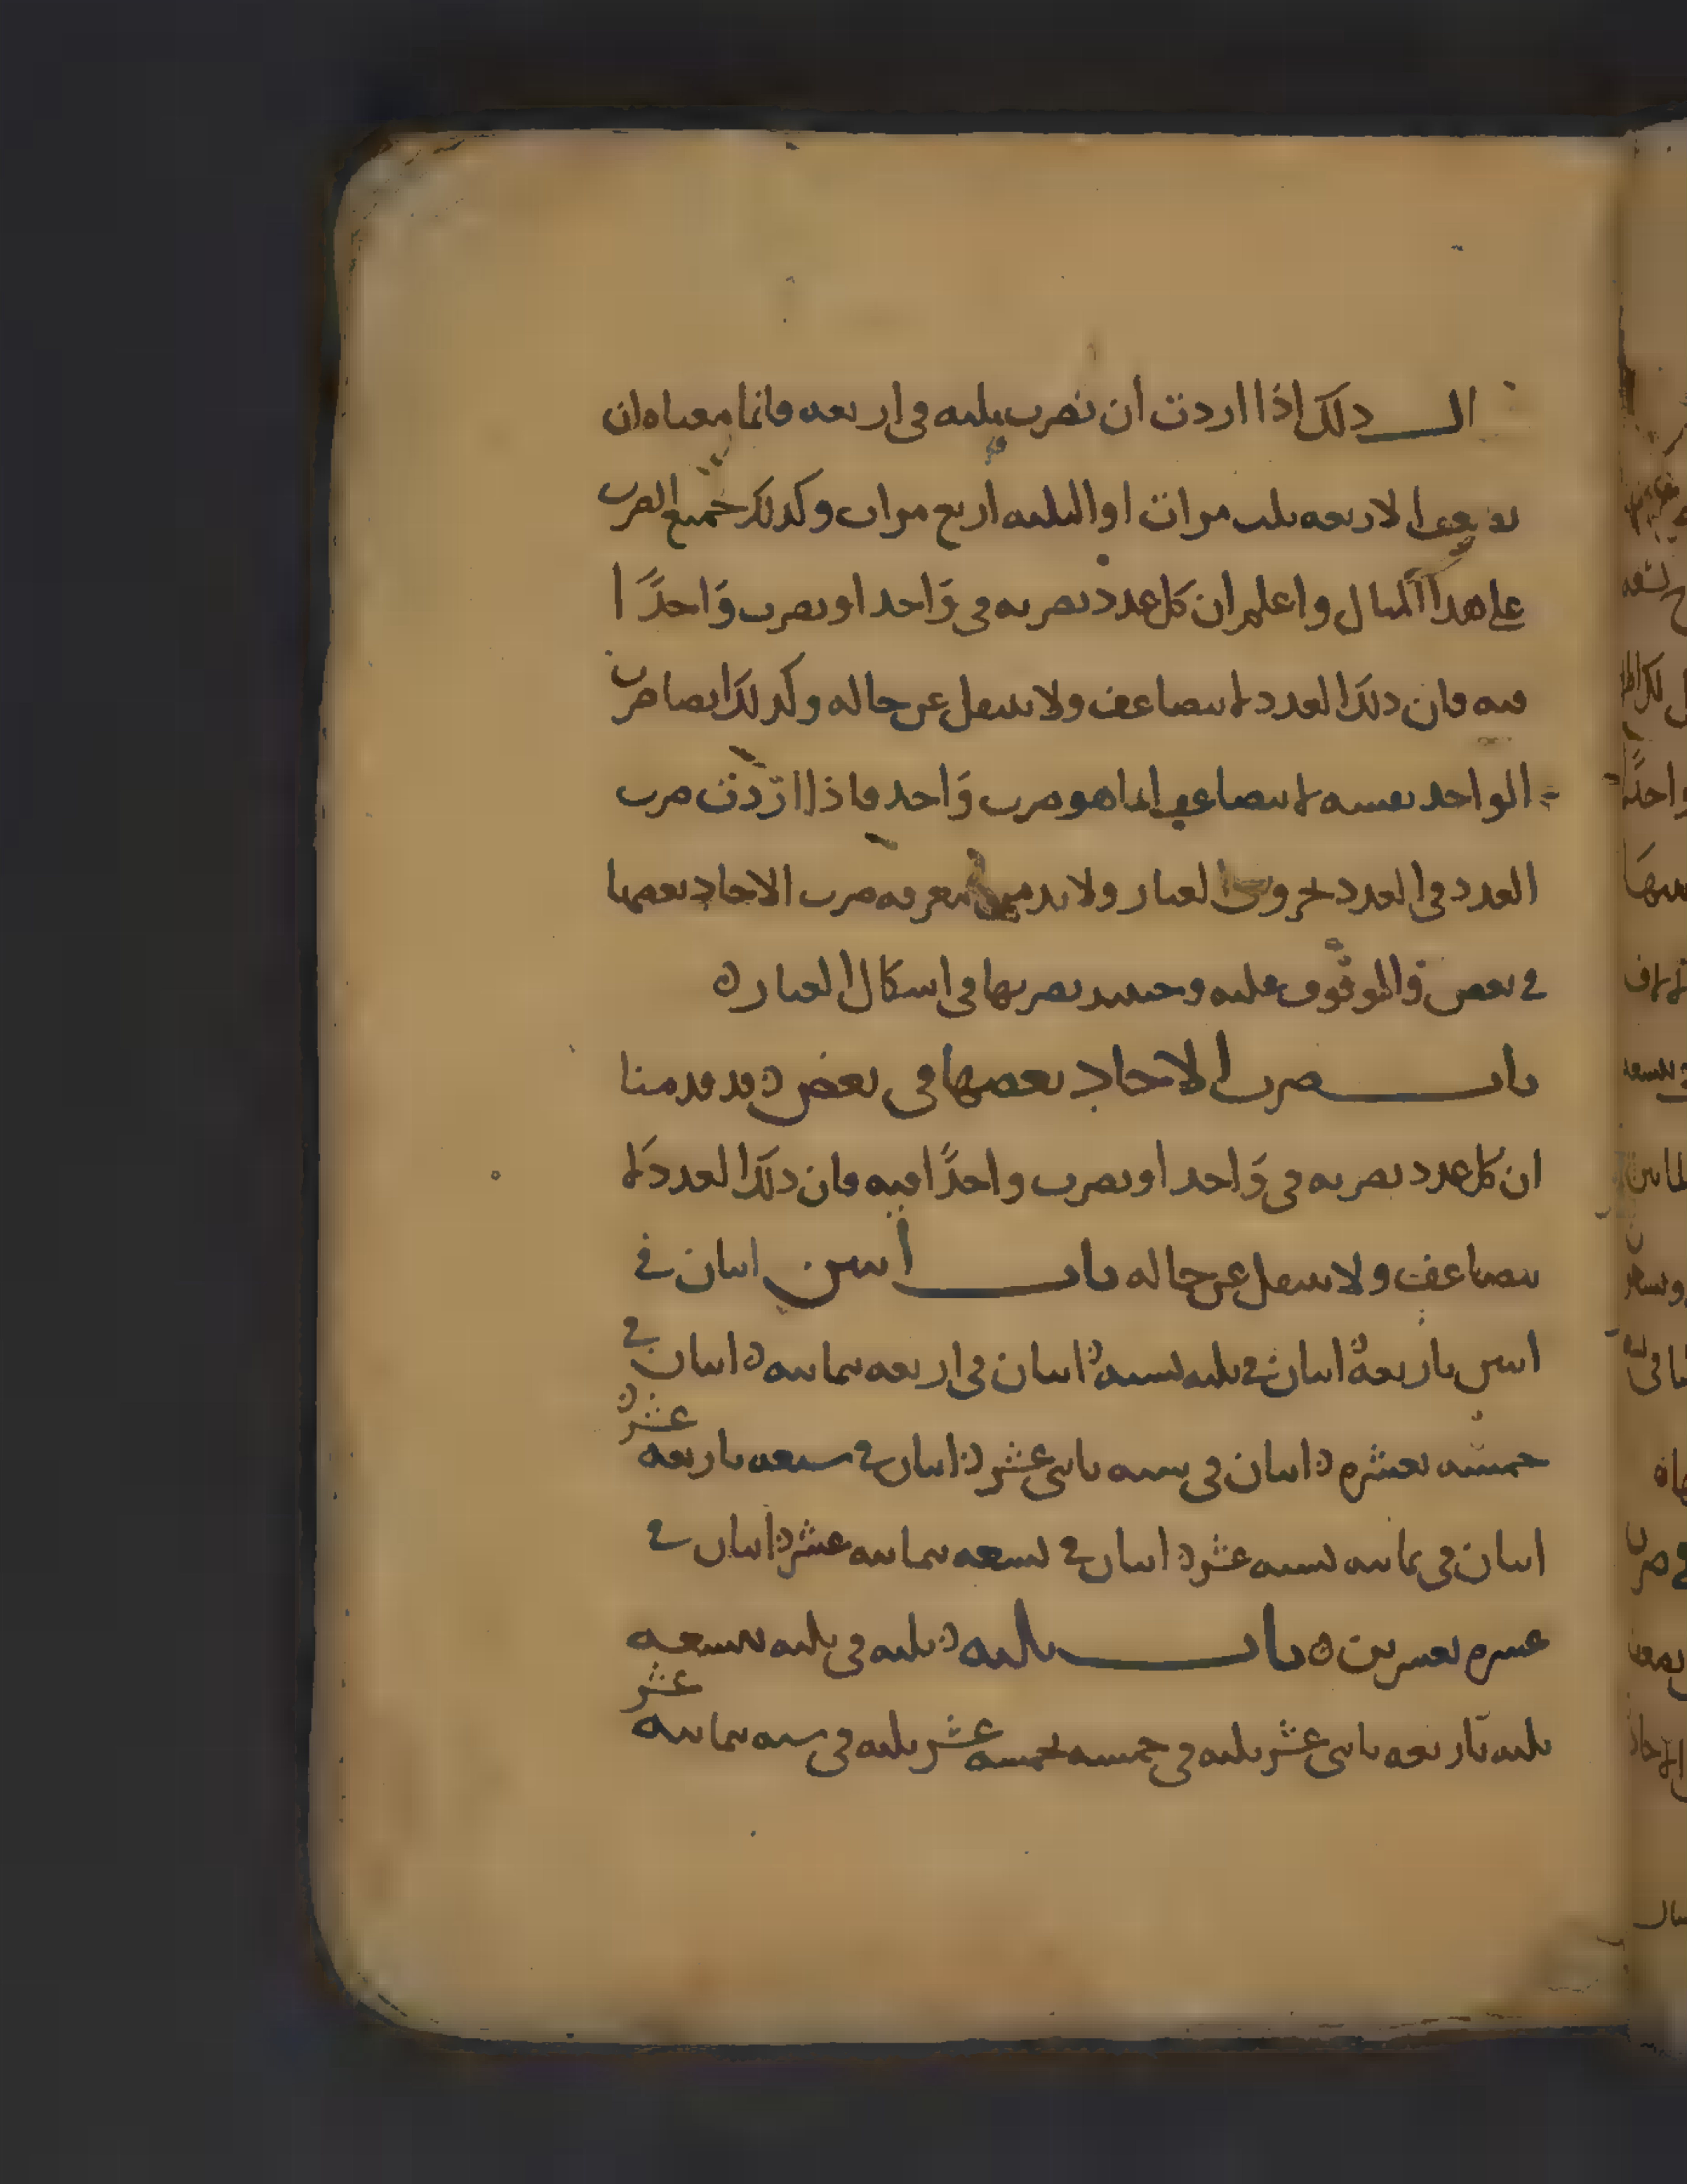 مثال ذلك اذا اردت ان تضرب ثلثه في اربعه فانما معناه ان
تضعف الاربعه ثلث مرات او الثلثه اربع مرات وكذلك جميع الضرب
على هذا المثال واعلم ان كل عدد تضربه في وَاحد او تضرب وَاحدًا
فيه فان ذلك العدد لا يتضاعف ولا ينتقل عن حاله وكذلك ايضا ضرب
الواحد بنفسه لا يتضاعف انما هو ضرب وَاحد فاذا ارَدت ضرب
العدد في العدد بحروف الغبار ولا بد من معرفه ضرب الاحاد بعضها
في بعض والوقوف عليه وحينئذ تضربها في اشكال الغبار ه
باب ضرب الاحاد بعضها في بعض ه قد قدمنا
ان كل عدد تضربه في وَاحد او تضرب واحدًا فيه فان ذلك العدد لَا
يتضاعف ولا ينتقل عن حاله باب اثنين اثنان في
اثنين باربعة اثنان في ثلثه بسته ه اثنان في اربعه بثمانيه ه اثنان في
خمسه بعشره ه اثنان في سته باثنى عشر ه اثنان في سبعه باربعه عشر ه
اثنان في ثمانيه بسته عشر ه اثنان في تسعه بثمانيه عشر ه اثنان في
عشره بعشرين ه باب ثلثه ه ثلثه في ثلثه بتسعه
ثلثه باربعه باثنى عشر ثلثه في خمسه بخمسه عشر ثلثه في سته بثمانيه عشر